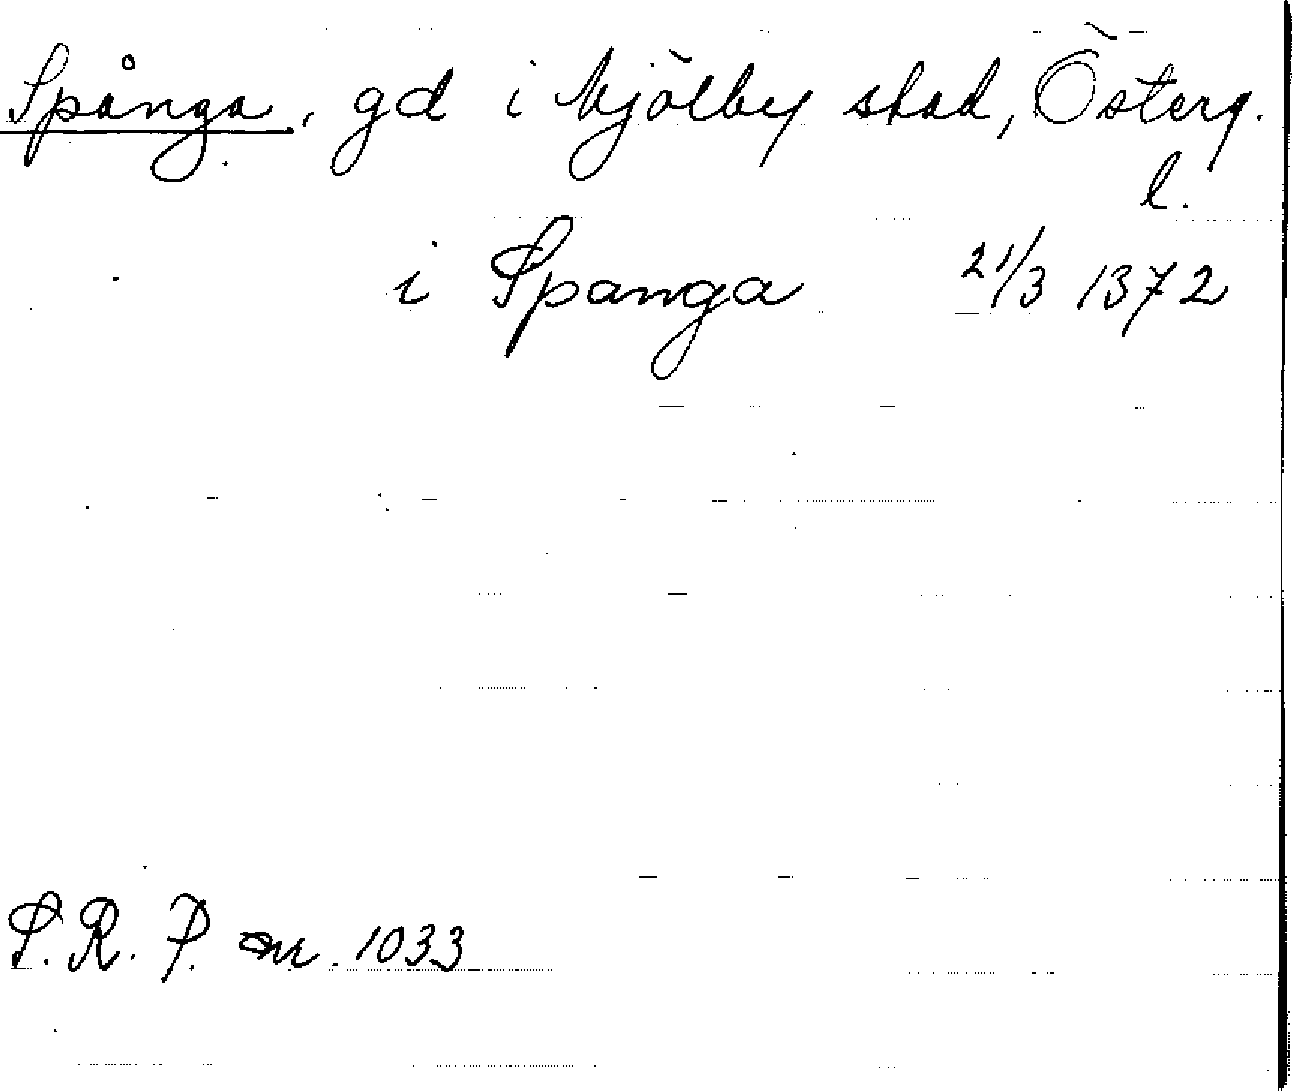 Spånga, gd i Mjölby stad, Österg.
l.
i Spanga 21/3 1372
S.R.P. nr. 1033